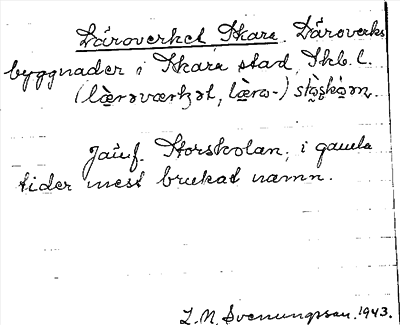 Läroverket Skara. Läroverks
byggnader i Skara stad, Skb. l.
(lærovær, læro-)
Jämf. Storskolan, i gamla
tider mest brukat namn.
L. N. Svenungsson. 1943.